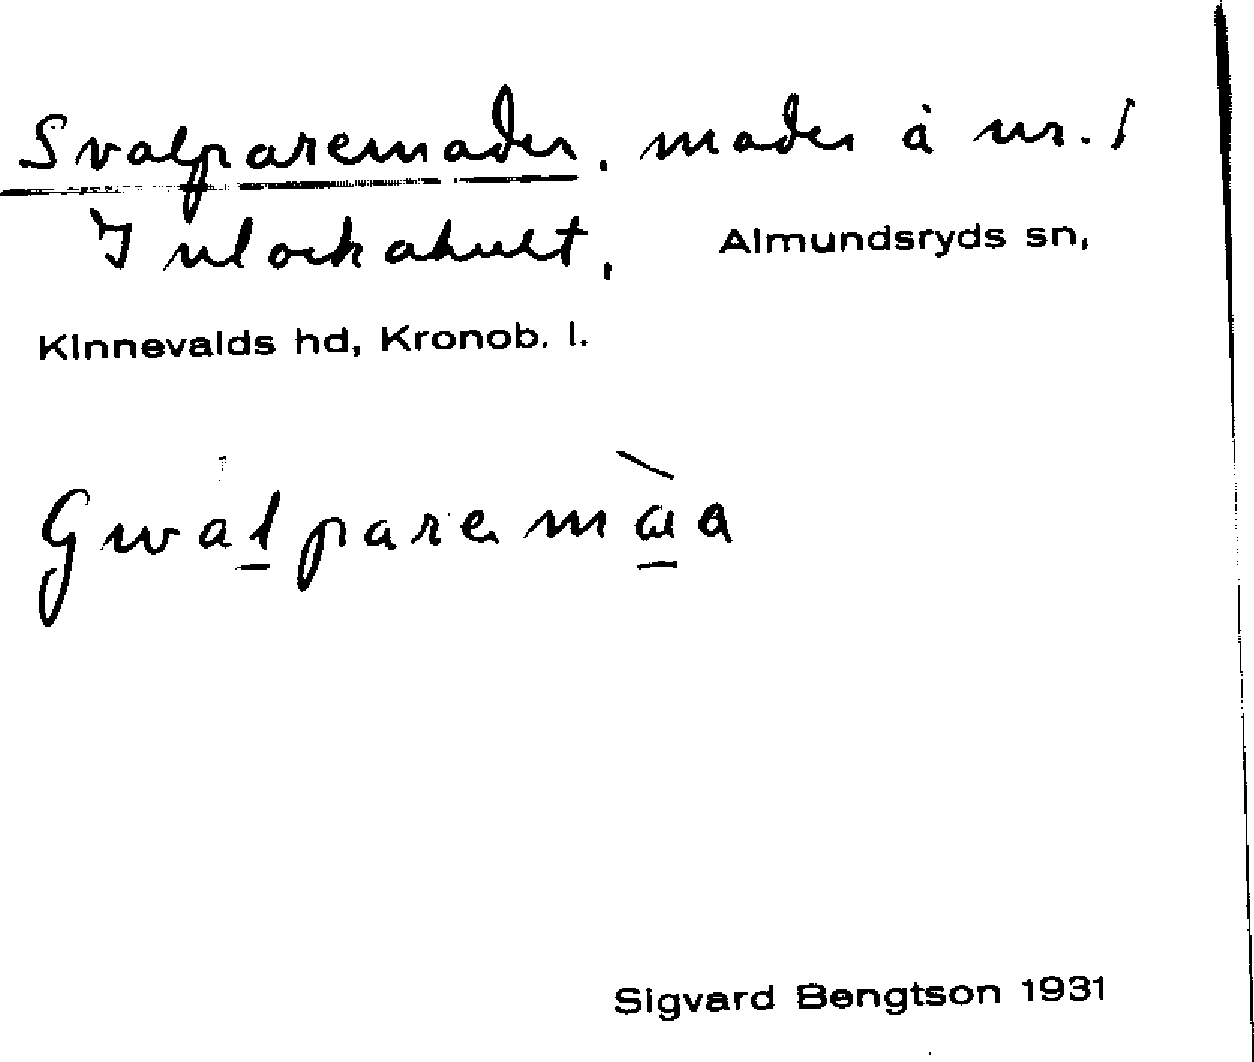 Svalparemaden, maden å nr. 1
Inlockahult, Almundsryds sn,
Kinnevalds hd, Kronob. l.
Gwalparemàa
Sigvard Bengtson 1931